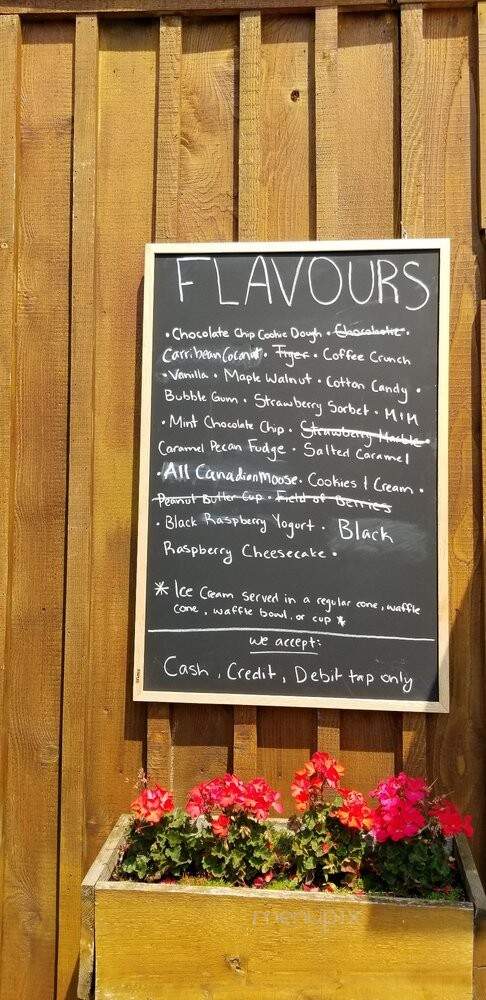 FLAVOURS
• Chocolate Chip Cookie Dough • Chocoholic •
Carribean Coconut • Tiger • Coffee Crunch
• Vanilla • Maple Walnut • Cotton Candy •
Bubble Gum • Strawberry Sorbet • M+M
• Mint Chocolate Chip • Strawberry Marble •
Caramel Pecan Fudge • Salted Caramel
• All Canadian Moose • Cookies + Cream •
Peanut Butter Cup • Field of Berries
• Black Raspberry Yogurt • Black
Raspberry Cheesecake •
* Ice Cream served in a regular cone, waffle
cone, waffle bowl, or cup *
we accept:
Cash, Credit, Debit tap only
menupix